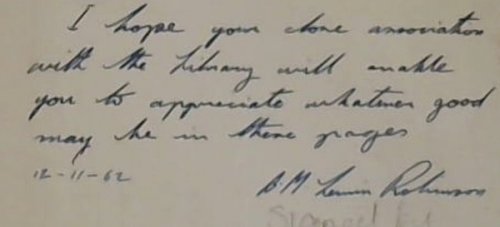 I hope your close association
with the Library will enable
you to appreciate whatever good
may be in these pages
12-11-62
Robinson